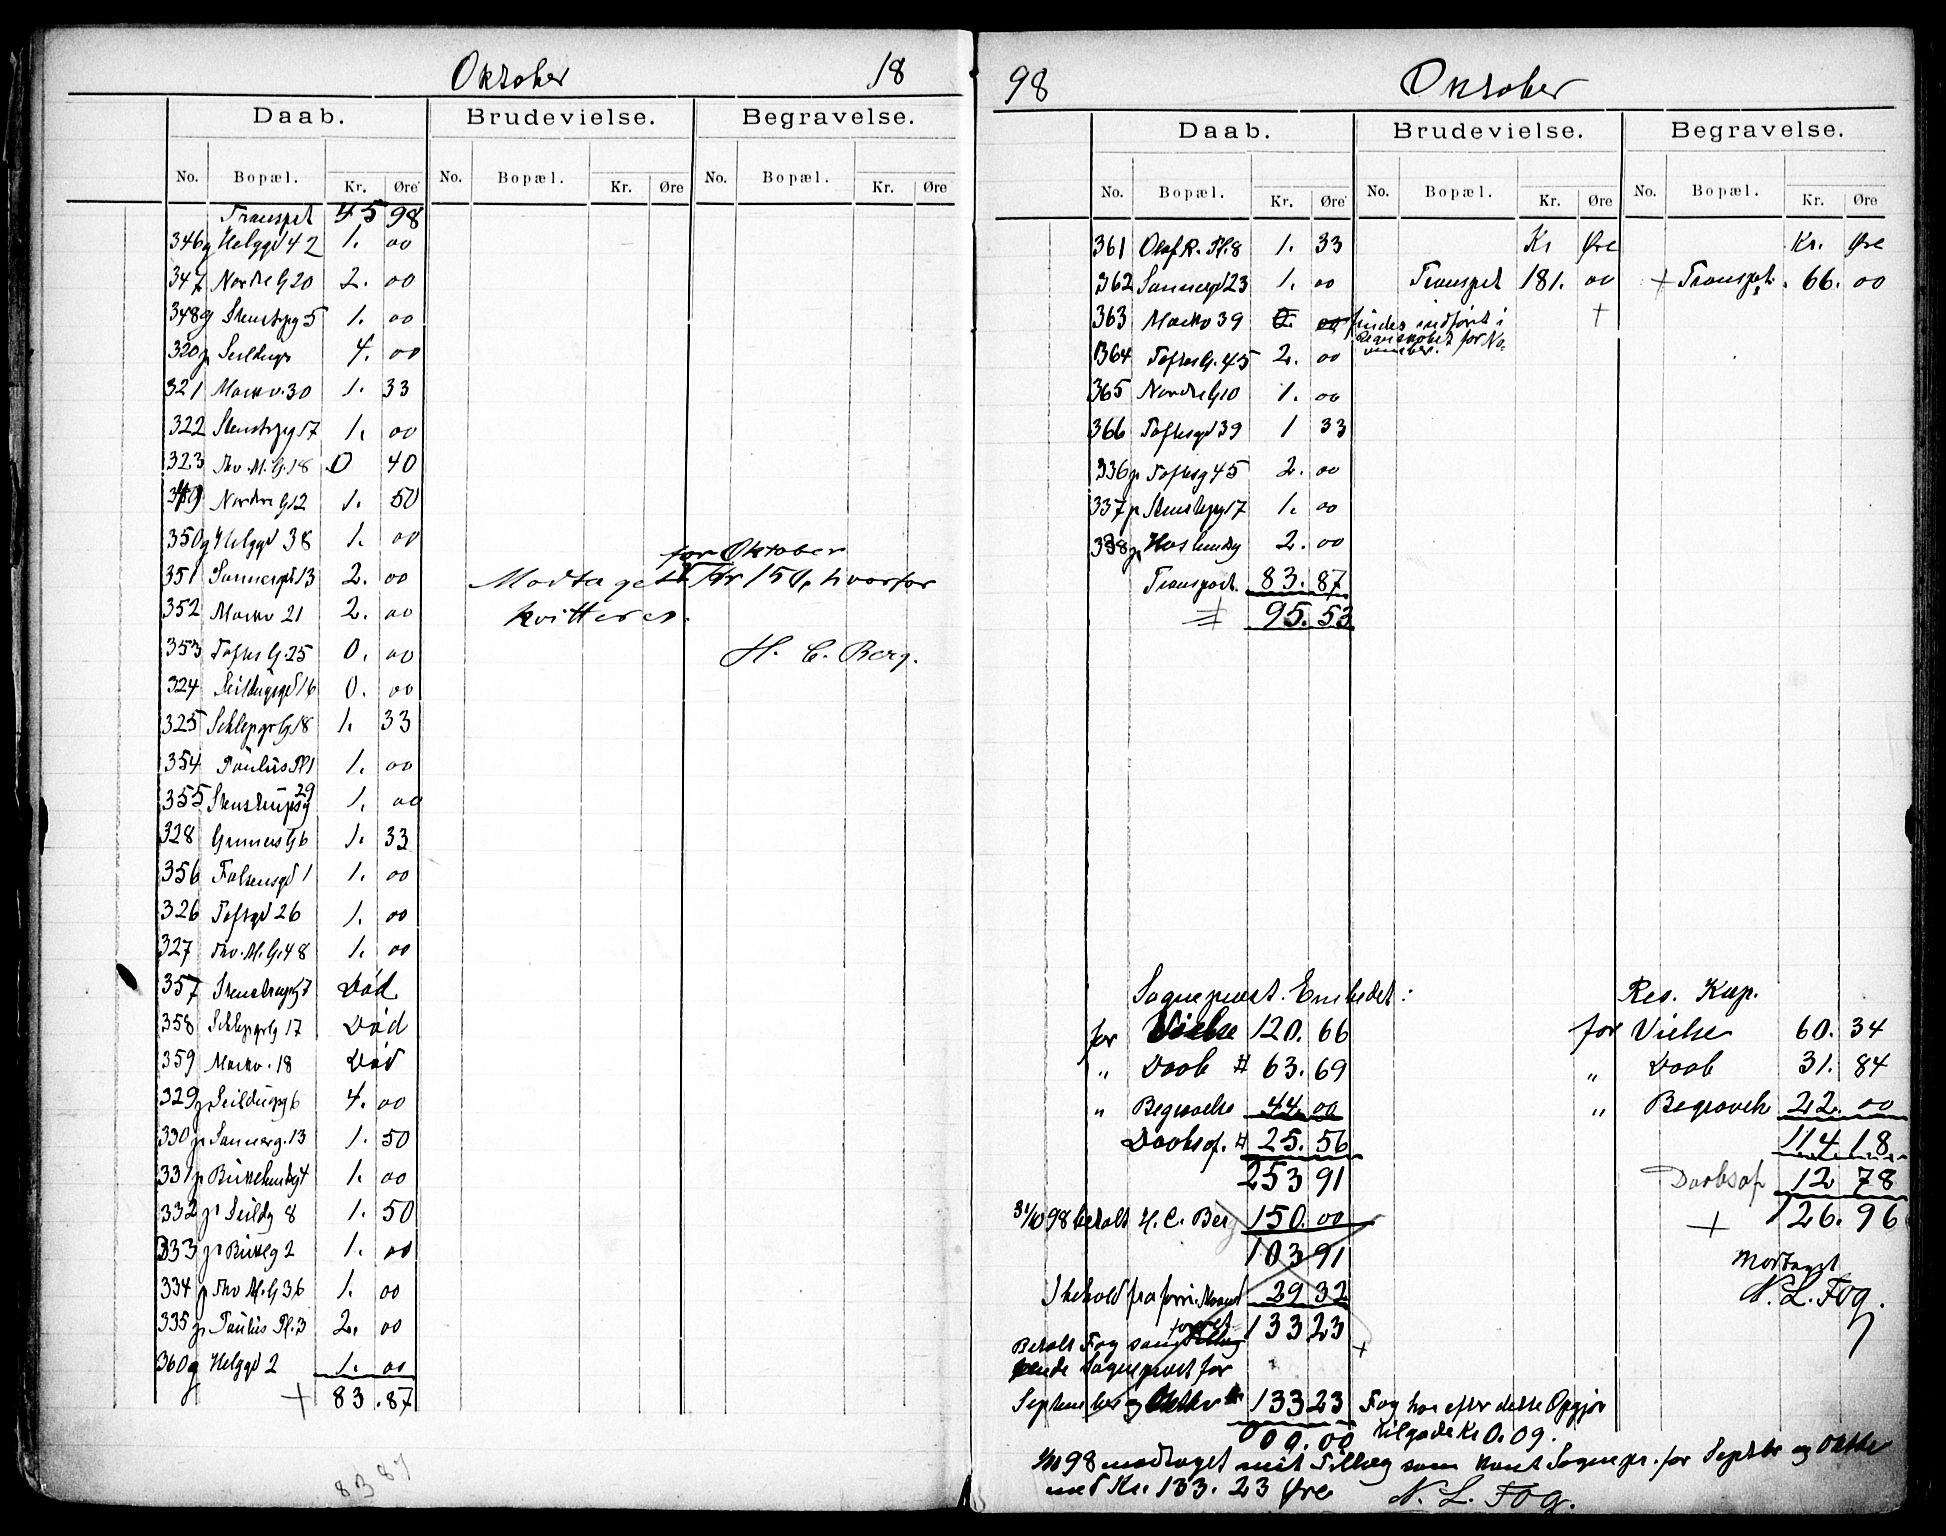 Oktober 18
Daab. Brudevielse. Begravelse.
No. Bopæl. Kr. Øre No. Bopæl. Kr. Øre No. Bopæl. Kr. Øre
Transpt 45 98
346g Helggd 42 1. 00
347 Nordre G 20 2. 00
348g Stenstrpg 5 1. 00
320p Seildugs 4. 00
321 Markv. 30 1. 33
322 Stenstrpg 17 1. 00
323 Thv. M. G. 18 0 40
349 Nordre G 12 1. 50
350g Helggd 38 1. 00
351 Sannergd 13 2. 00
352 Markv 21 2. 00
353 Toftes G. 25 0. 00
324 Seildugsgd 16 0. 00
325 Schlepgr G 18 1. 33
354 Paulus Pl 1 1. 00
355 Stenstrupsg 29 1. 00
328 Grüners G 6 1. 33
356 Falsensgd 1 1. 00
326 Toftsgd 26 1. 00
327 Thv. M. G. 48 1. 00
357 Stenstrupg 7 Død
358 Schlepgr G 17 Død
359 Markv. 18 Død
329p Seildugsg 6 4. 00
330p Sannerg. 13 1. 50
331p Birkelundsg 4 1. 00
332p Seildg 8 1. 50
333p Birkelg 2 1. 00
334p Thv M. G 36 1. 00
335p Paulus Pl. 3 2. 00
360g Helggd 2 1. 00
+ 83. 87
83 87
for Oktober
Modtaget Kr 150, hvorfor
kvitteres.
H. C. Berg.
98 Oktober
Daab. Brudevielse. Begravelse.
No. Bopæl. Kr. Øre No. Bopæl. Kr. Øre No. Bopæl. Kr. Øre
361 Olaf R. Pl. 8 1. 33 Kr Øre Kr. Øre
362 Sannergd 23 1. 00 Transpt 181. 00 + Transpt. 66. 00
363 Markv 39 0. 00 findes indført i +
Regnskabet for No-
vember.
364 Toftes G. 45 2. 00
365 Nordre G 10 1. 00
366 Toftesgd 39 1 33
336p Toftesg 45 2. 00
337p Stenstrpg 17 1. 00
338p Haslundsg 2. 00
Transport. 83. 87
95. 53
Sogneprest. Embedet: Res. Kap.
for Vielse 120. 66 for Vielse 60. 34
„ Daab # 63. 69 „ Daab 31. 84
„ Begravelse 44. 00 „ Begravelse 22. 00
Daabsof. # 25. 56 114 18
253 91 Daabsof 12 78
31/10 98 betalt H. C. Berg 150. 00 + 126. 96
103 91 Modtaget
I behold fra forri. Maaned 29 32 N. L. Fog.
133 23 +
Betalt Fog som
Sogneprest for
September og Oktbr 133 23 Fog har efter dette Opgjør
000. 00 tilgode Kr 0. 09.
98 modtaget mit Tillæg som konst Sognepr. for Septbr og Oktbr
med Kr. 133. 23 Øre N. L. Fog.